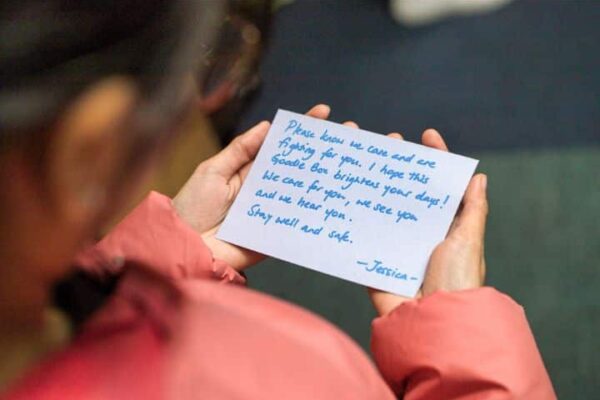 Please know we care and are
fighting for you. I hope this
Goodie Box brightens your days!
We care for you, we see you
and we hear you.
Stay well and safe.
—Jessica—